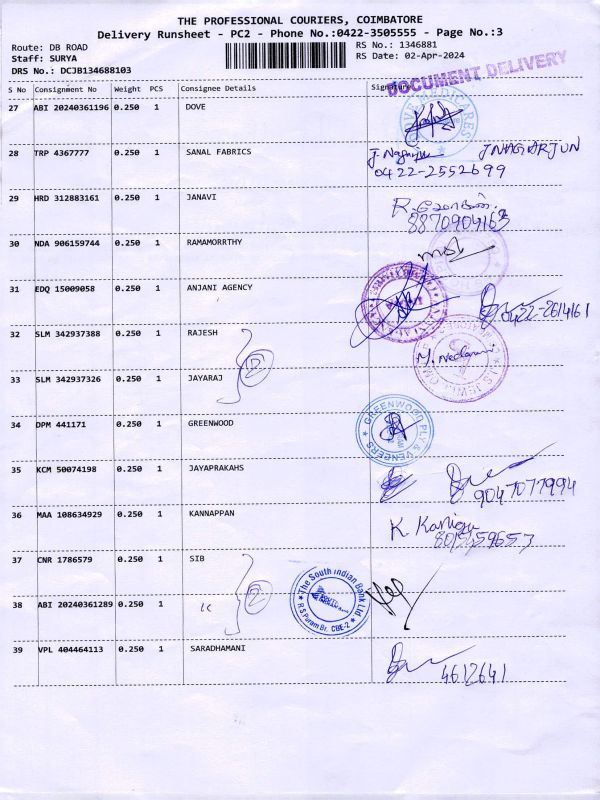 THE PROFESSIONAL COURIERS, COIMBATORE
Delivery Runsheet - PC2 - Phone No.:0422-3505555 - Page No.:3
Route: DB ROAD
Staff: SURYA
DRS No.: DCJB134688103
RS No.: 1346881
RS Date: 02-Apr-2024
DOCUMENT DELIVERY
S No Consignment No Weight PCS Consignee Details Signature
27 ABI 20240361196 0.250 1 DOVE
28 TRP 4367777 0.250 1 SANAL FABRICS J. Nagarju J NAGARJUN
0422-2552699
29 HRD 312883161 0.250 1 JANAVI
8870904163
30 NDA 906159744 0.250 1 RAMAMORRTHY
31 EDQ 15009058 0.250 1 ANJANI AGENCY 0422-2614161
32 SLM 342937388 0.250 1 RAJESH
2
33 SLM 342937326 0.250 1 JAYARAJ
34 DPM 441171 0.250 1 GREENWOOD GREENWOOD PLY & VENEERS
35 KCM 50074198 0.250 1 JAYAPRAKAHS
9047077994
36 MAA 108634929 0.250 1 KANNAPPAN
37 CNR 1786579 0.250 1 SIB
2
The South Indian Bank Ltd
R S Puram Br. CBE-2
38 ABI 20240361289 0.250 1
39 VPL 404464113 0.250 1 SARADHAMANI
4612641